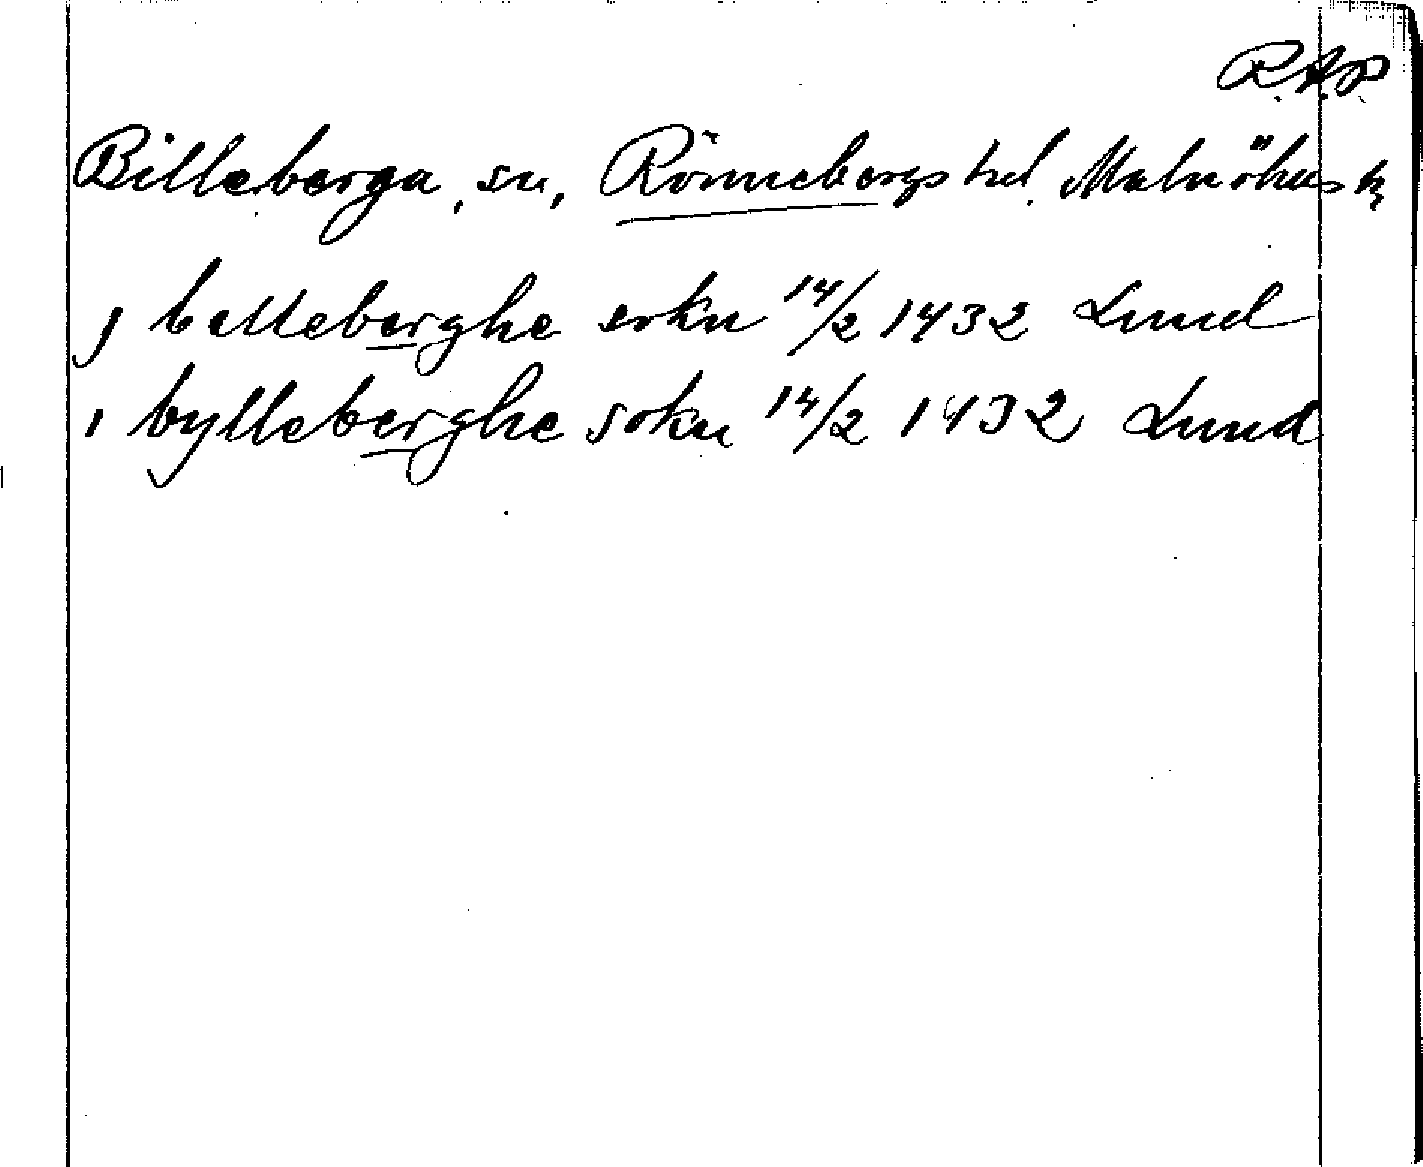 R.A.P.
Billeberga, sn, Rönnebergs hd. Malmöhus
j belleberghe sokn 14/2 1432 Lund
i bylleberghe sokn 14/2 1432 Lund